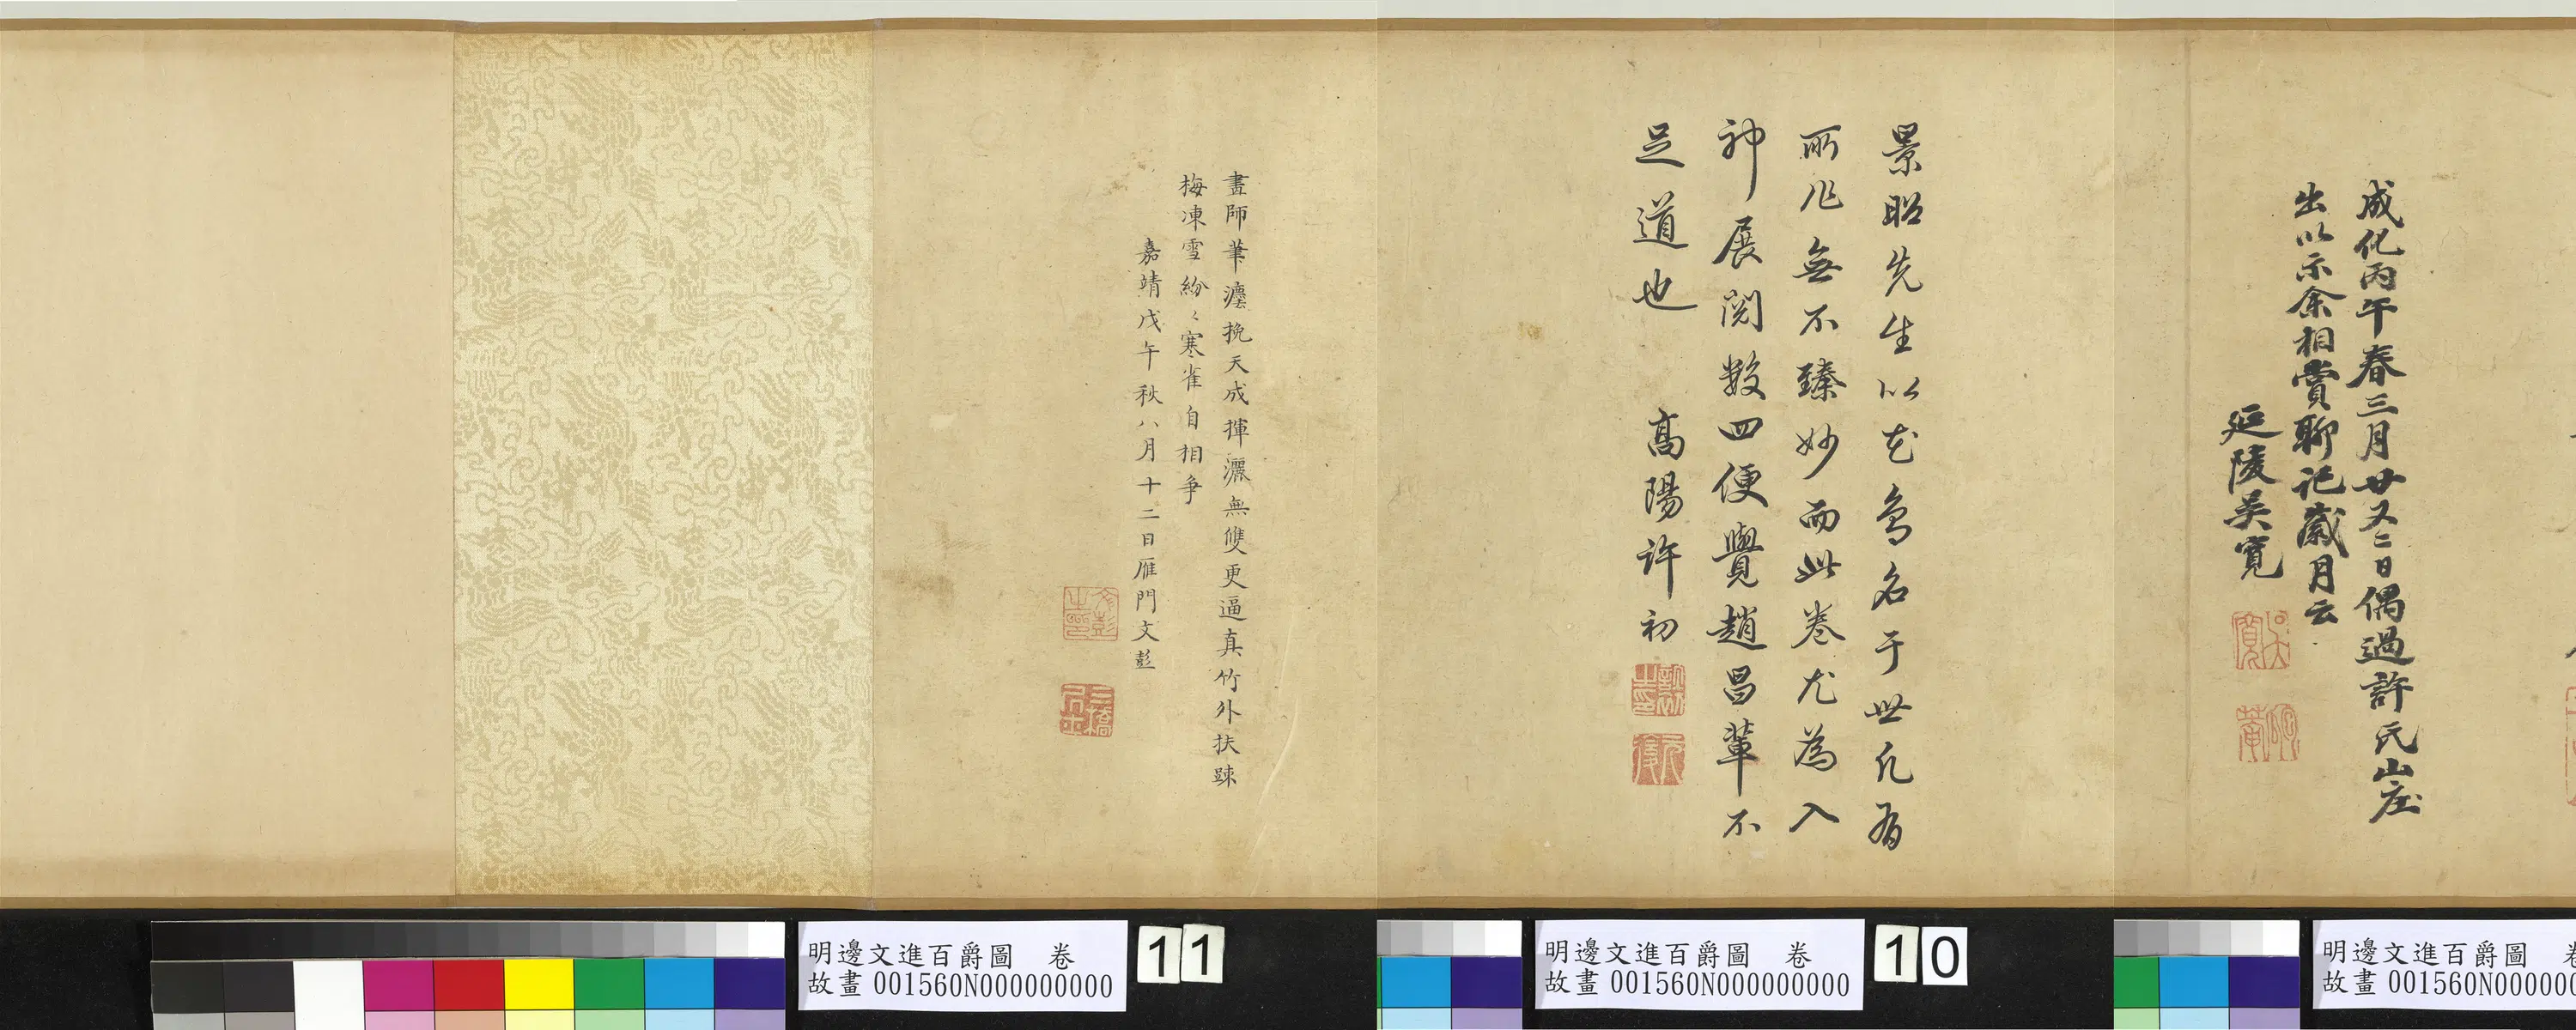 成化丙午春三月廿又二日偶過許氏山庄
出以示余相賞聊記歲月云
延陵吳寬
吳寬
匏菴
景昭先生以花鳥名于世凡有
所作無不臻妙而此卷尤為入
神展閱數四便覺趙昌輩不
足道也 高陽許初
許初之印
元復
畫師筆灋挽天成揮灑無雙更逼真竹外扶踈
梅凍雪紛〻寒雀自相爭
嘉靖戊午秋八月十二日雁門文彭
文彭之印
三橋居士
明邊文進百爵圖 卷
故畫 001560N000000000
11
明邊文進百爵圖 卷
故畫 001560N000000000
10
明邊文進百爵圖
故畫 001560N000000